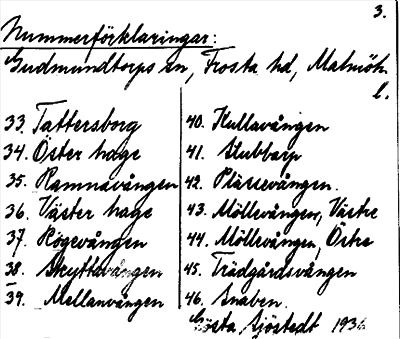 3.
Nummerförklaringar:
Gudmundtorps sn, Frosta hd, Malmöh.
l.
33. Tattersborg
34. Öster hage
35. Ramnavången
36. Väster hage
37. Högevången
38. Skyttavången
39. Mellanvången
40. Kullavången
41. Slubbarp
42. Plässevången.
43. Möllevången, Västre
44. Möllevången, Östre
45. Trädgårdsvången
46. Snaben.
Gösta Sjöstedt 1936